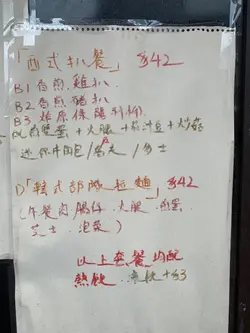 「西式扒餐」 $42
B1 香煎雞扒
B2 香煎豬扒
B3
煎雙蛋+火腿+茄汁豆+炒菇
迷你牛角包/多士
D「韓式部隊拉麵」$42
(午餐肉 腸仔 火腿 煎蛋
芝士 泡菜)
以上套餐均配
熱飲 凍飲+$3